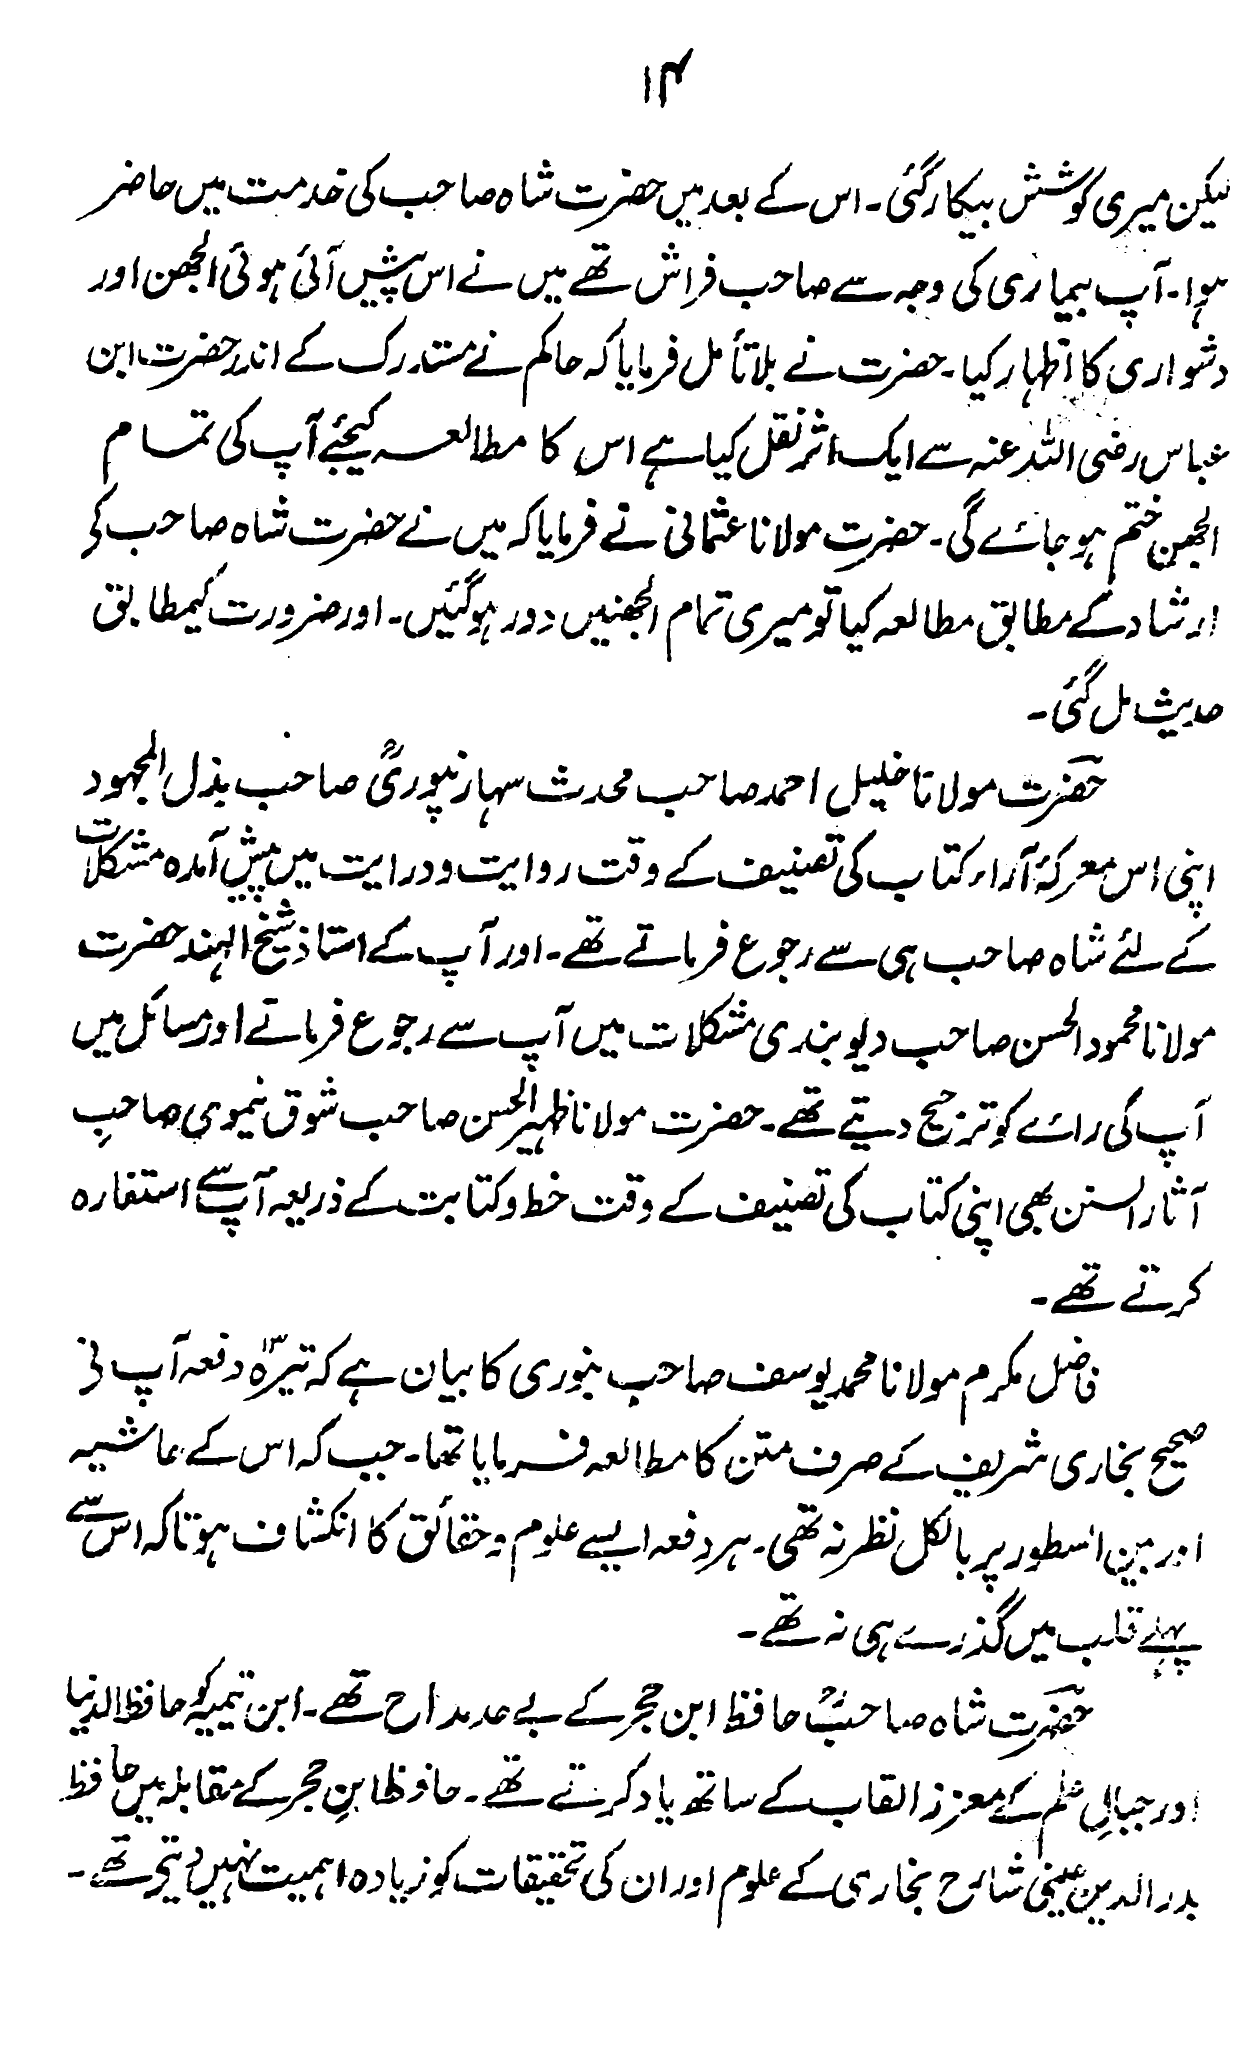 ۱۴
لیکن میری کوشش بیکار گئی۔ اس کے بعد میں حضرت شاہ صاحب کی خدمت میں حاضر
ہوا۔ آپ بیماری کی وجہ سے صاحب فراش تھے میں نے اس پیش آئی ہوئی الجھن اور
دشواری کا اظہار کیا۔ حضرت نے بلا تأمل فرمایا کہ حاکم نے مستدرک کے اندر حضرت ابن
عباس رضی اللہ عنہ سے ایک اثر نقل کیا ہے اس کا مطالعہ کیجئے آپ کی تمام
الجھن ختم ہو جائے گی۔ حضرت مولانا عثمانی نے فرمایا کہ میں نے حضرت شاہ صاحب کی
ارشاد کے مطابق مطالعہ کیا تو میری تمام الجھنیں دور ہو گئیں۔ اور ضرورت کیمطابق
حدیث مل گئی۔
حضرت مولانا خلیل احمد صاحب محدث سہارنپوریؒ صاحب بذل المجہود
اپنی اس معرکۂ آراء کتاب کی تصنیف کے وقت روایت و درایت میں پیش آمدہ مشکلات
کے لئے شاہ صاحب ہی سے رجوع فرماتے تھے۔ اور آپ کے استاذ شیخ الہند حضرت
مولانا محمود الحسن صاحب دیوبندی مشکلات میں آپ سے رجوع فرماتے اور مسائل میں
آپ کی رائے کو ترجیح دیتے تھے۔ حضرت مولانا ظہیر الحسن صاحب شوق نیموی صاحبِ
آثار السنن بھی اپنی کتاب کی تصنیف کے وقت خط و کتابت کے ذریعہ آپ سے استفادہ
کرتے تھے۔
فاضل مکرم مولانا محمد یوسف صاحب بنوری کا بیان ہے کہ تیرہ ۱۳ دفعہ آپ نی
صحیح بخاری شریف کے صرف متن کا مطالعہ فرمایا تھا۔ جب کہ اس کے حاشیہ
اور بین السطور پر بالکل نظر نہ تھی۔ ہر دفعہ ایسے علوم و حقائق کا انکشاف ہوتا کہ اس سے
پہلے قلب میں گذرے ہی نہ تھے۔
حضرت شاہ صاحبؒ حافظ ابن حجر کے بے حد مداح تھے۔ ابن تیمیہ کو حافظ الدنیا
اور جبالِ علم کے معزز القاب کے ساتھ یاد کرتے تھے۔ حافظ ابنِ حجر کے مقابلہ میں حافظ
بدر الدین عینی شارح بخاری کے علوم اور ان کی تحقیقات کو زیادہ اہمیت نہیں دیتے تھے۔